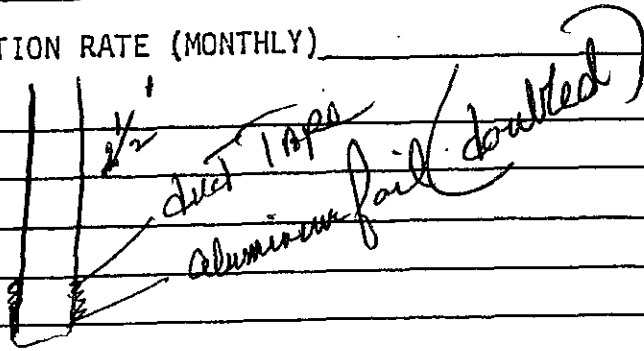 TION RATE (MONTHLY)
2 1/2'
duct Tape
aluminum foil (doubled)